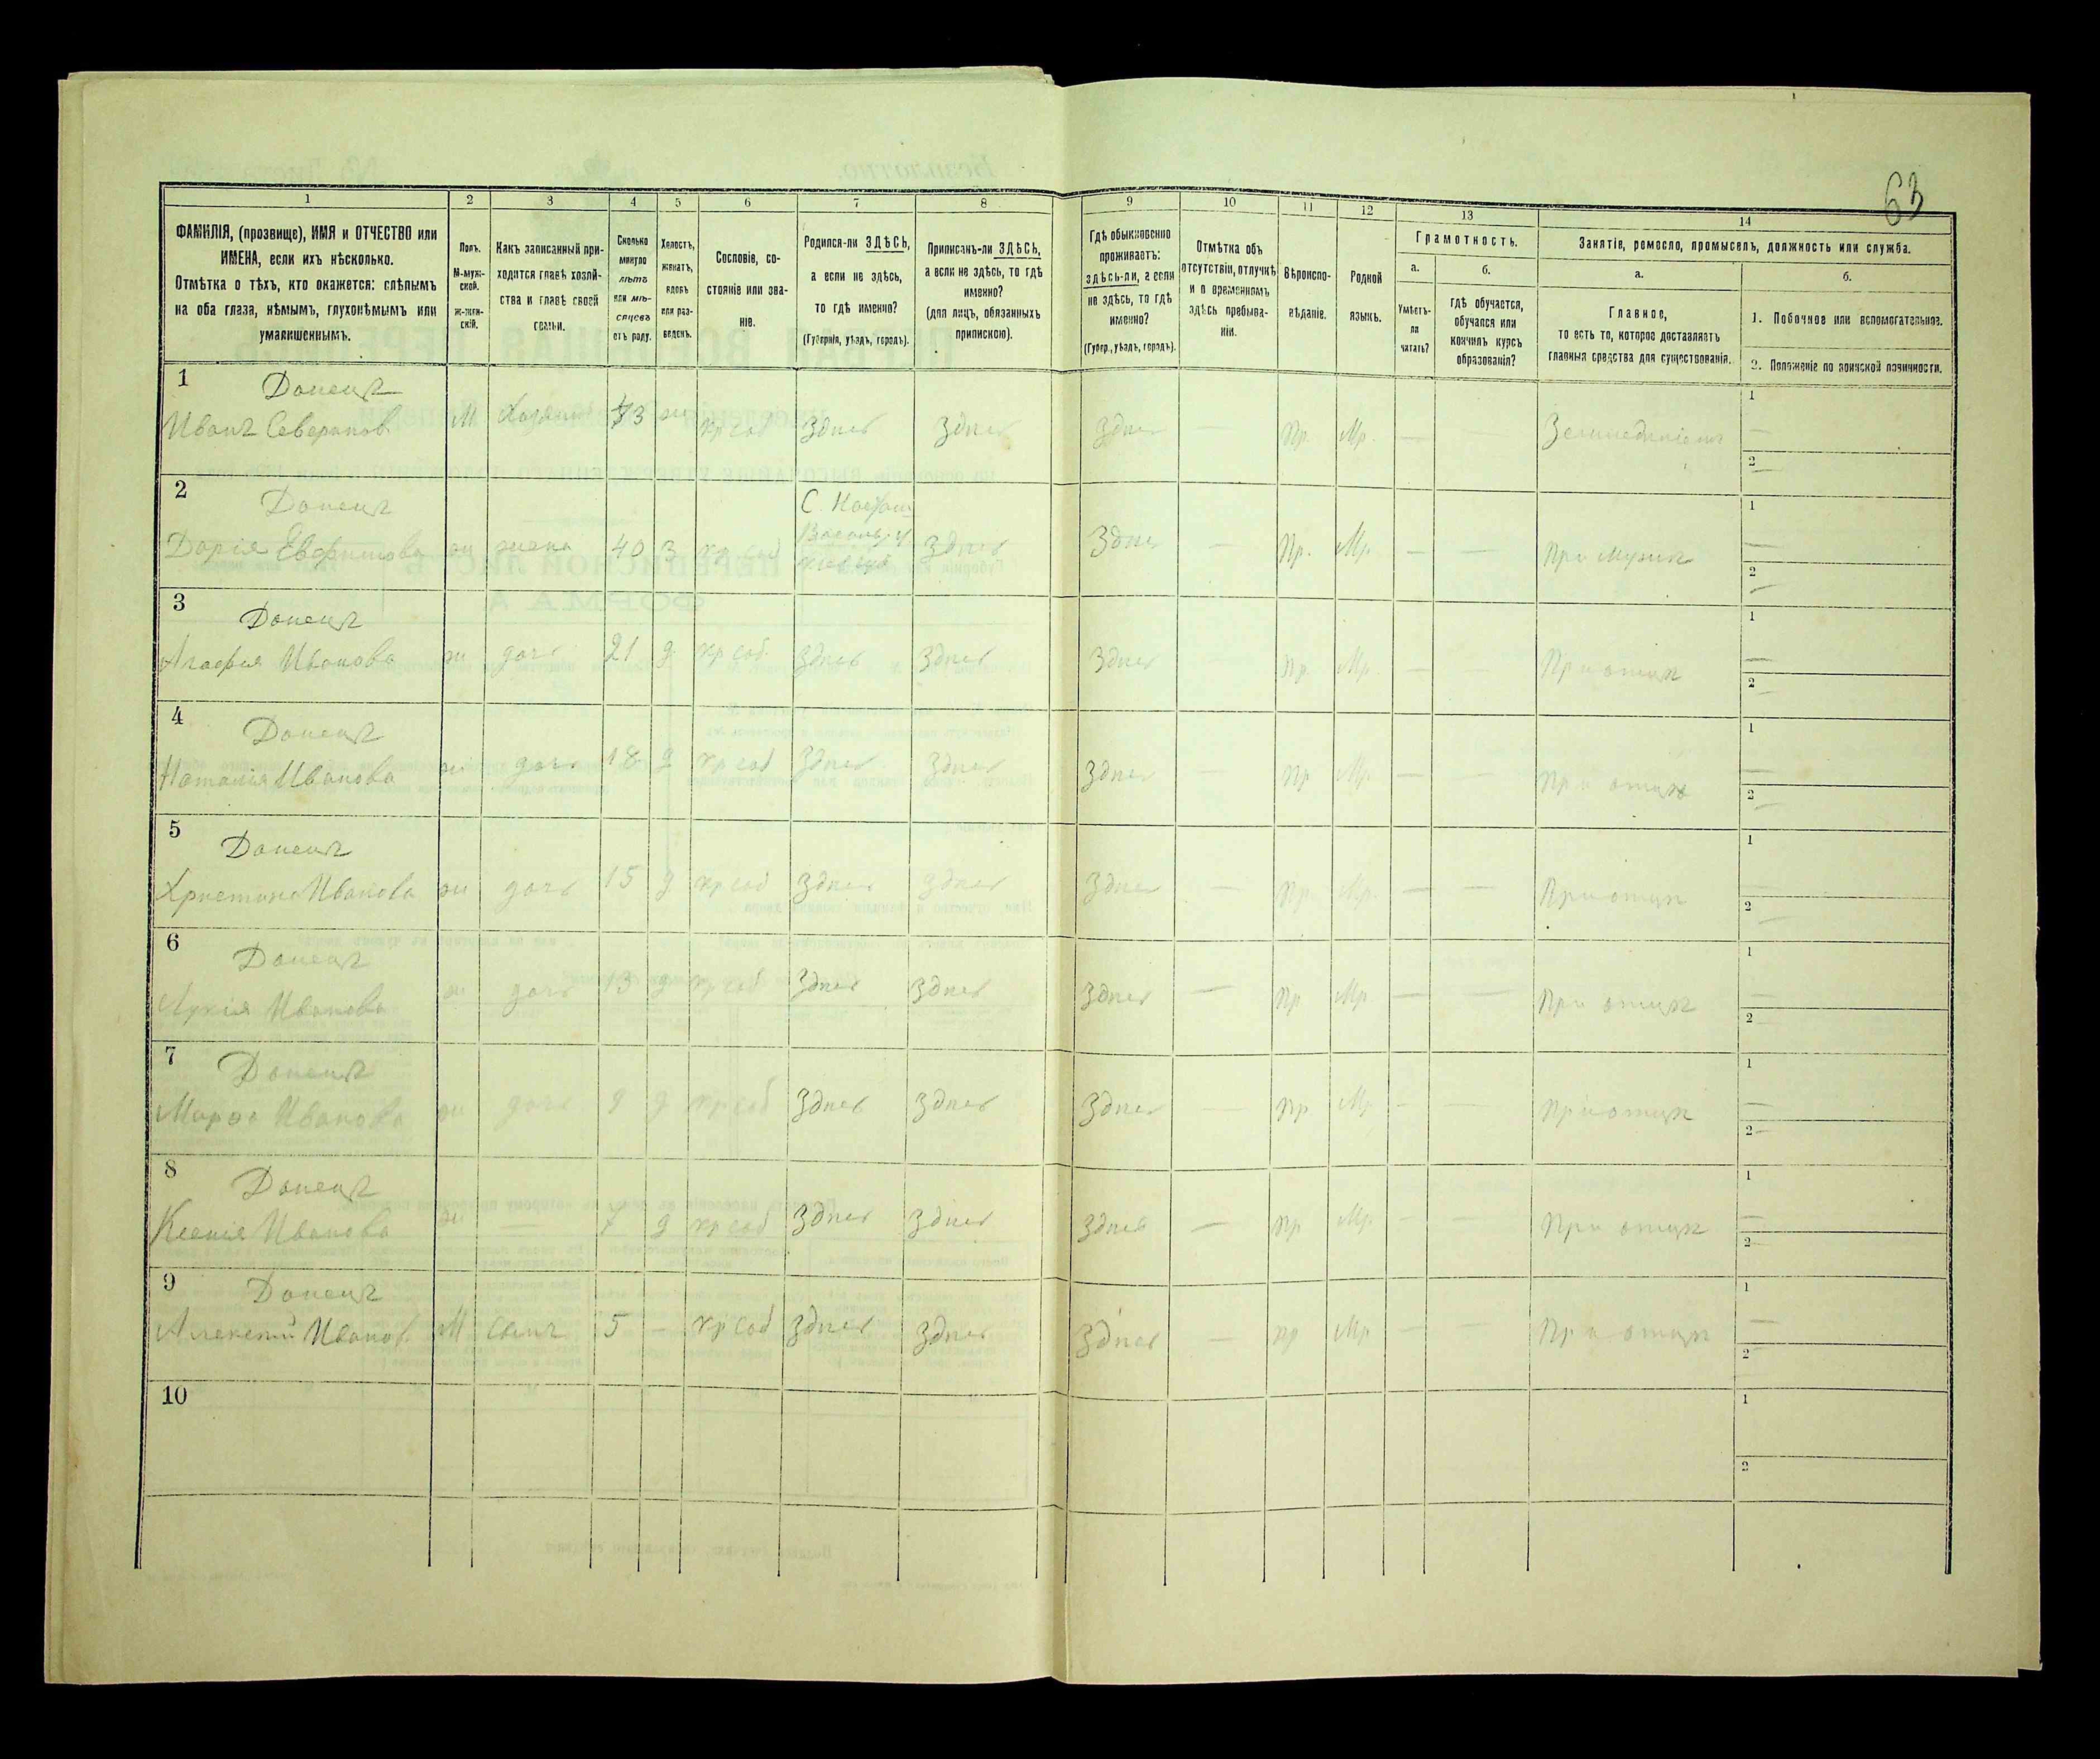 63
1 2 3 4 5 6 7 8 9 10 11 12 13 14
ФАМИЛІЯ, (прозвище), ИМЯ и ОТЧЕСТВО или
ИМЕНА, если ихъ нѣсколько.
Отмѣтка о тѣхъ, кто окажется: слѣпымъ
на оба глаза, нѣмымъ, глухонѣмымъ или
умалишеннымъ.
Полъ.
М-муж-
ской.
Ж-жен-
скій.
Какъ записанный при-
ходится главѣ хозяй-
ства и главѣ своей
семьи.
Сколько
минуло
лѣтъ
или мѣ-
сяцевъ
отъ роду.
Холостъ,
женатъ,
вдовъ
или раз-
веденъ.
Сословіе, со-
стояніе или зва-
ніе.
Родился-ли ЗДѢСЬ,
а если не здѣсь,
то гдѣ именно?
(Губернія, уѣздъ, городъ).
Приписанъ-ли ЗДѢСЬ,
а если не здѣсь, то гдѣ
именно?
(для лицъ, обязанныхъ
припискою).
Гдѣ обыкновенно
проживаетъ:
здѣсь-ли, а если
не здѣсь, то гдѣ
именно?
(Губер., уѣздъ, городъ).
Отмѣтка объ
отсутствіи, отлучкѣ
и о временномъ
здѣсь пребыва-
ніи.
Вѣроиспо-
вѣданіе.
Родной
языкъ.
Грамотность.
а.
Умѣетъ-
ли
читать?
б.
гдѣ обучается,
обучался или
кончилъ курсъ
образованія?
Занятіе, ремесло, промыселъ, должность или служба.
а.
Главное,
то есть то, которое доставляетъ
главныя средства для существованія.
б.
1. Побочное или вспомогательное.
2. Положеніе по воинской повинности.
1 Донецъ 1
Иванъ Северинов. М Хозяинъ 43 ж кр соб Здѣсь Здѣсь Здѣсь — Пр. Мр. — — Земледѣліемъ —
2 —
2 Донецъ 1
Дарія Евфимова ж жена 40 з кр соб Здѣсь Здѣсь — Пр. Мр. — — При мужѣ —
2 —
3 Донецъ 1
Агафія Иванова ж дочь 21 д кр соб. Здѣсь Здѣсь Здѣсь Пр. Мр. — — При отцѣ —
2 —
4 Донецъ 1
Наталія Иванова ж дочь 18 д кр соб Здѣсь Здѣсь Здѣсь — Пр Мр. — — При отцѣ —
2 —
5 Донецъ 1
Христина Иванова ж дочь 15 д кр соб Здѣсь Здѣсь Здѣсь — Пр. Мр. — — При отцѣ —
2 —
6 Донецъ 1
Лукія Иванова ж дочь 13 д кр соб Здѣсь Здѣсь Здѣсь — Пр Мр. — — При отцѣ —
2 —
7 Донецъ 1
Марфа Иванова ж дочь 9 д кр соб Здѣсь Здѣсь Здѣсь — Пр. Мр — — При отцѣ —
2 —
8 Донецъ 1
Ксенія Иванова ж — 7 д кр соб Здѣсь Здѣсь Здѣсь — Пр Мр. — — При отцѣ —
2
9 Донецъ 1
Алексѣй Иванов. М сынъ 5 — кр соб Здѣсь Здѣсь Здѣсь — пр Мр — — При отцѣ —
2 —
10 1
2